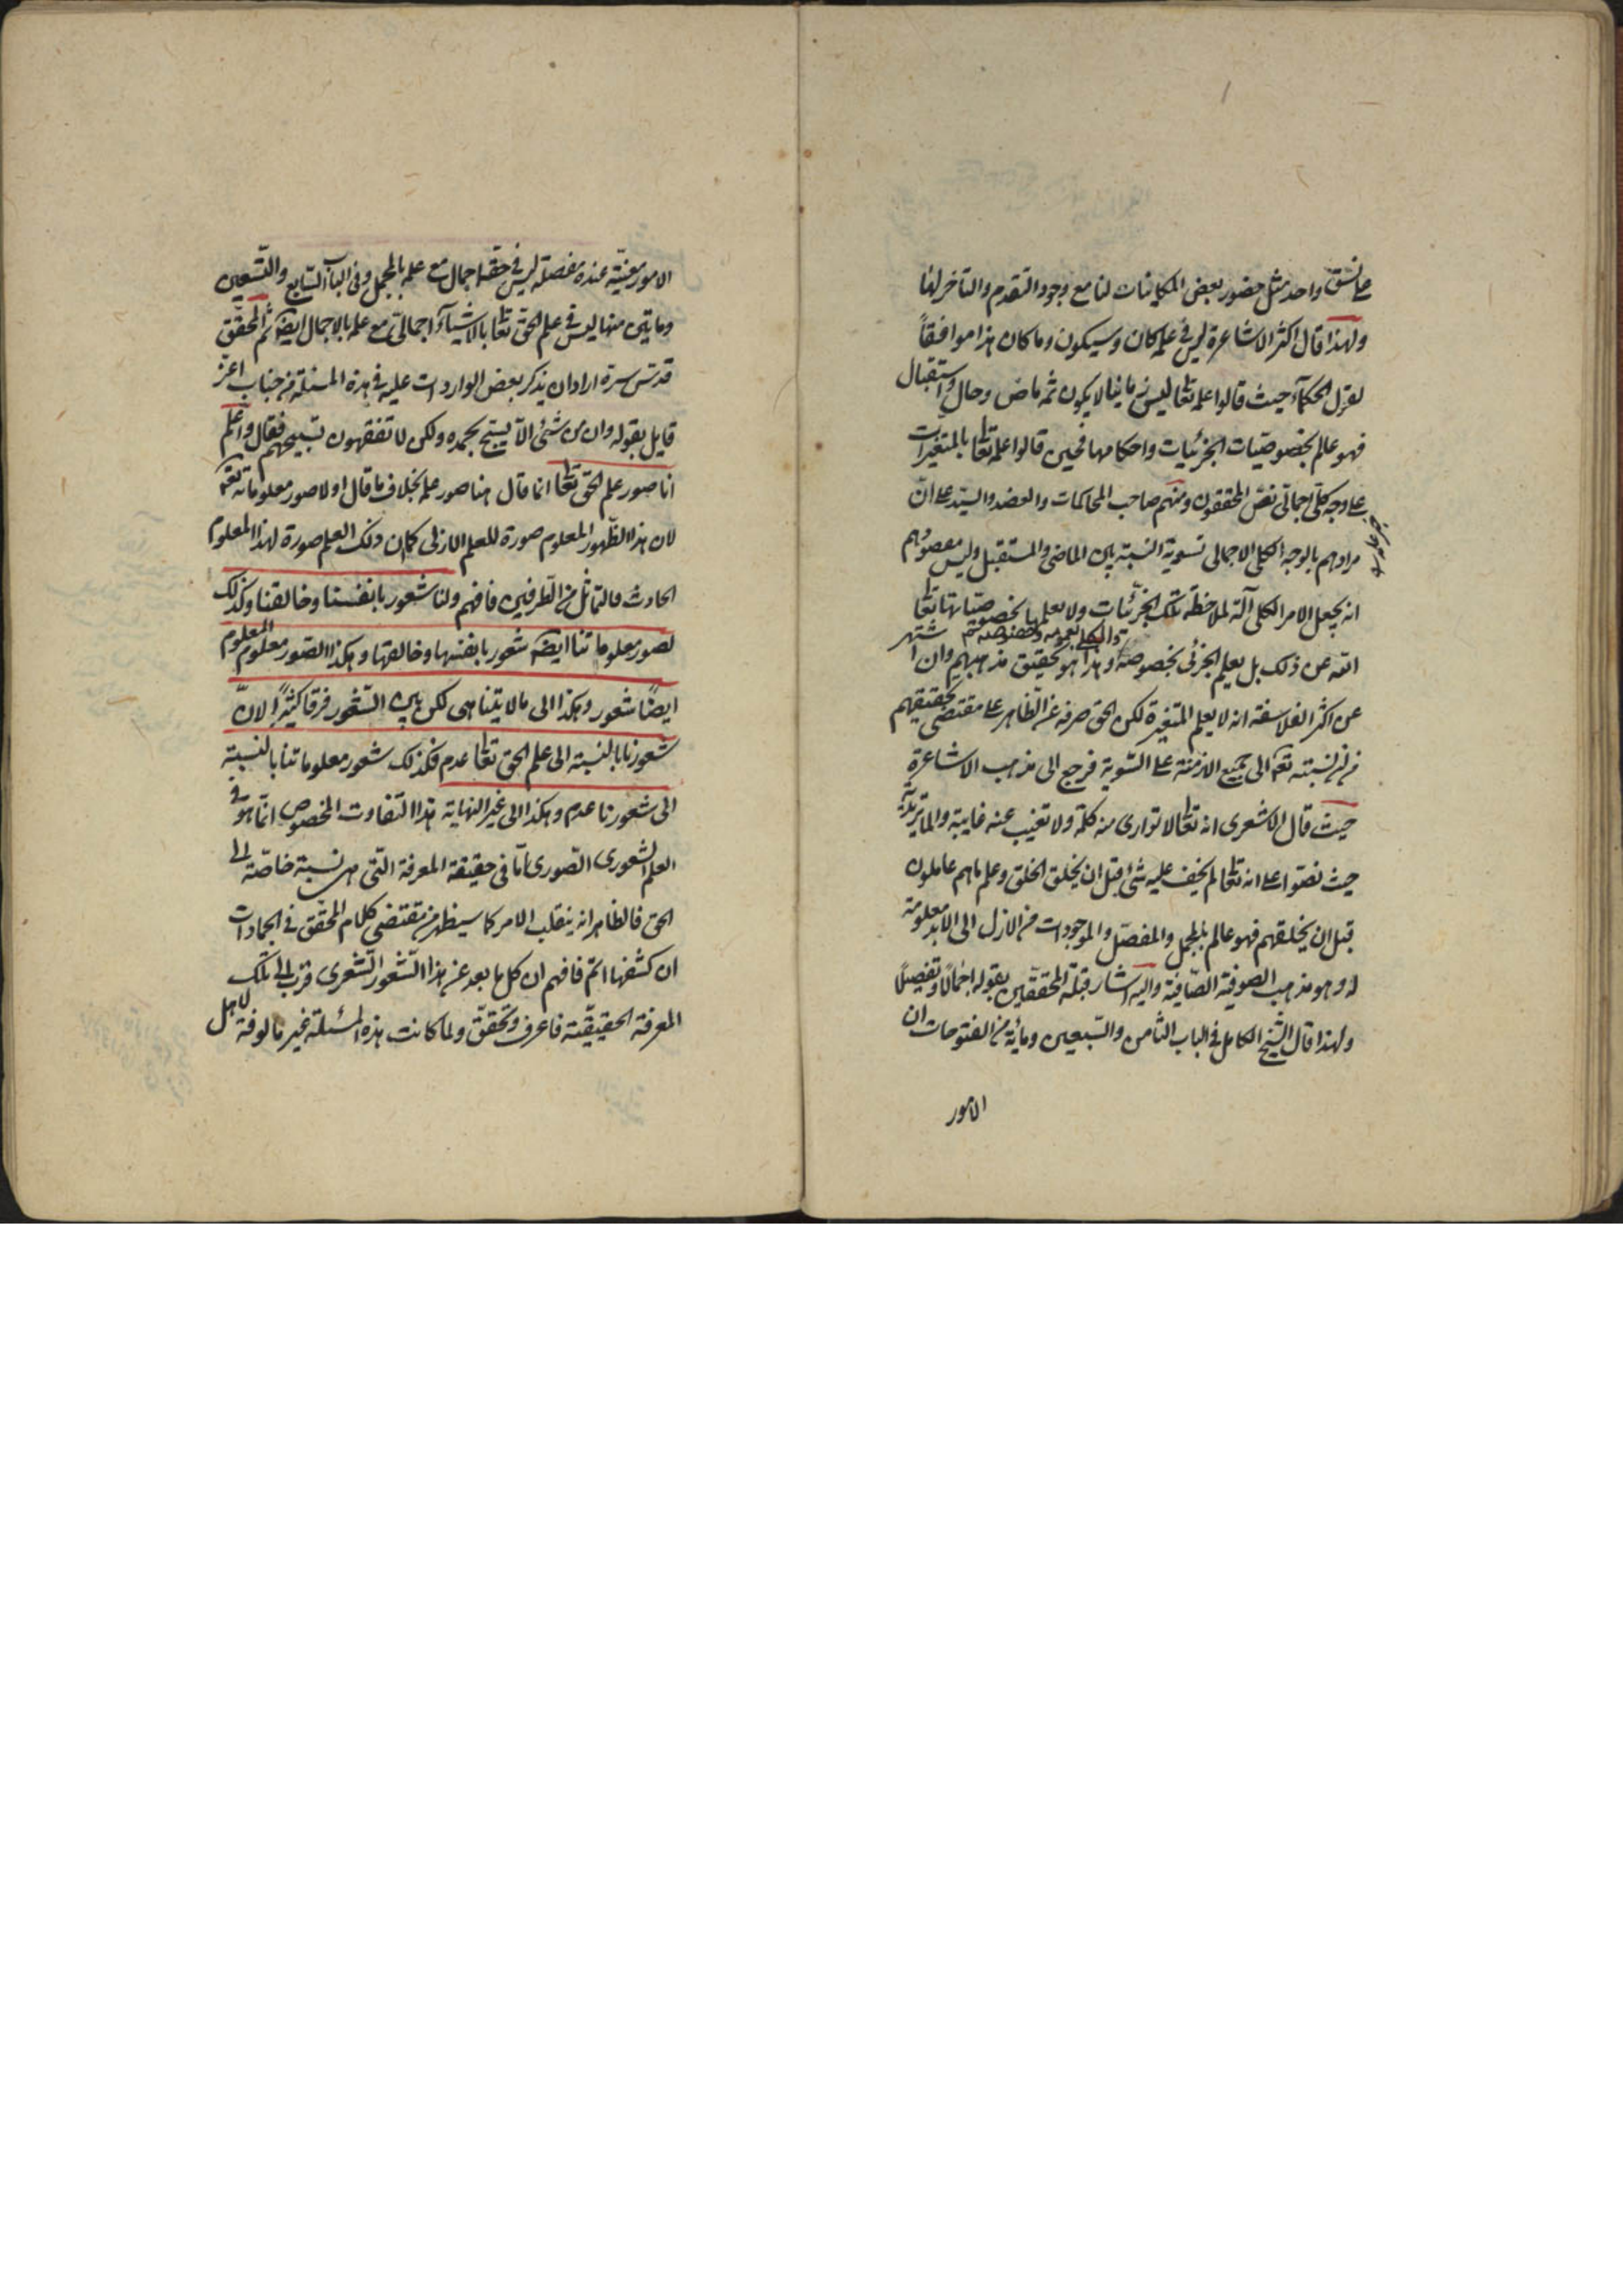 على نسق واحد مثل حضور بعض المكانيات لنا مع وجود التقدم والتاخر لها
ولهذا قال اكثر الاشاعرة ليس فى علمه كان وسيكون وما كان هذا موافقاً
لقول الحكمآء حيث قالوا علمه تعالى ليس زمانيا لا يكون ثمه ماض وحال واستقبال
فهو عالم بخصوصيّات الجزئيات واحكامها فحين قالوا علمه تعالى بالمتغيرات
على وجه كلّى اجمالى نصّ المحققون ومنهم صاحب المحاكمات والعضد والسيّد على انّ
مرادهم بالوجه الكلى الاجمالى تسوية النسبة بين الماضى والمستقبل وليس مقصودهم
انه يجعل الامر الكلى آلة لملاحظة تلك الجزئيات ولا يعلمها بخصوصيّاتها تعالى
الله عن ذلك بل يعلم الجزئى بخصوصه وهذا هو تحقيق مذهبهم وان اشتهر
والكلى بعمومه
عن اكثر الفلاسفة انه لا يعلم المتغيرة لكن الحق صرفه عن الظاهر على مقتضى تحقيقهم
من ان نسبته تعه الى جميع الازمنة على السّوية فرجع الى مذهب الاشاعرة
حيث قال الاشعرى انه تعالى لا توارى منه كلمة ولا تغيب عنه غايبة والماتريديّة
حيث نصّوا على انه تعالى لم يخف عليه شئ قبل ان يخلق الخلق وعلم ما هم عاملون
قبل ان يخلقهم فهو عالم بالمجمل والمفصّل والموجودات من الازل الى الابد معلومة
له وهو مذهب الصوفية الصّافية واليه اشار قبلة المحققين بقوله اجمالاً وتفصيلاً
ولهذا قال الشيخ الكامل فى الباب الثامن والسّبعين ومائة من الفتوحات ان
الامور
الامور معيّنة عنده مفصلة ليس فى حقه اجمال مع علمه بالمجمل وفى الباب السّابع والتسعين
ومايتين منها ليس فى علم الحق تعالى بالاشيآء اجمالى مع علمه بالاجمال ايضه ثم المحقّق
قدّس سرّه اراد ان يذكر بعض الواردات عليه فى هذه المسئلة من جناب اعزّ
قايل بقوله وان من شئ الاّ يسبّح بحمده ولكن لا تفقهون تسبيحهم فقال واعلم
انا صور علم الحق تعالى انما قال هنا صور علمه بخلاف ما قال اولا صور معلوماته تعه
لان هذا الظّهور المعلوم صورة للعلم الازلى كما ان ذلك العلم صورة لهذا المعلوم
الحادث فالتماثل من الطّرفين فافهم ولنا شعور بانفسنا وخالقنا وكذلك
لصور معلوماتنا ايضه شعور بانفسها وخالقها وهكذا الصّور معلوم المعلوم
ايضًا شعور وهكذا الى ما لا يتناهى لكن بين الشّعور فرقا كثيرًا لانّ
شعورنا بالنسبة الى علم الحق تعالى عدم فكذلك شعور معلوماتنا بالنسبة
الى شعورنا عدم وهكذا الى غير النهاية هذا التفاوت المخصوص انّما هو فى
العلم الشعورى الصّورى امّا فى حقيقة المعرفة التّى هى نسبة خاصّة الى
الحق فالظاهر انه ينقلب الامر كما سيظهر من مقتضى كلام المحقّق فى الجمادات
ان كشفها اتمّ فافهم ان كل ما بعد عن هذا الشّعور الشّعرى قرب الى تلك
المعرفة الحقيقيّة فاعرف وتحقّق ولما كانت هذه المسئلة غير مالوفة لاهل